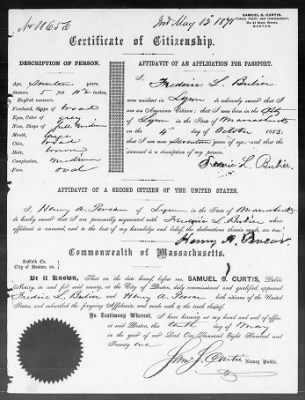 No 11656
Iss'd May 12 1871
SAMUEL S. CURTIS,
Notary Public, and Commissioner,
BOSTON.
Certificate of Citizenship.
DESCRIPTION OF PERSON.
Age, years.
Stature, 5 feet inches
English measure.
Forehead, Shape of broad
Eyes, Color of grey
Nose, Shape of medium
Mouth, large
Chin, broad
Hair, brown
Complexion, medium
Face, oval
AFFIDAVIT OF AN APPLICATION FOR PASSPORT.
I, Frederic L. Bubier
now of Lynn do solemnly swear that I am
an American Citizen; that I was born in the City
of Lynn in the State of Massachusetts
on the 4th day of October 1853;
that I am now seventeen years of age; and that the
annexed is a description of my person.
Frederic L. Bubier.
AFFIDAVIT OF A SECOND CITIZEN OF THE UNITED STATES.
I, Henry A. Pevear of Lynn in the State of Massachusetts
do hereby assert that I am personally acquainted with Frederic L. Bubier whose
affidavit is annexed, and to the best of my knowledge and belief the declarations therein made, are true.
Henry A. Pevear.
Commonwealth of Massachusetts.
Suffolk Co.
City of Boston, ss.
Be it Known, That on the date hereof before me, SAMUEL S. CURTIS, Public
Notary, in and for said county, at the City of Boston, duly commissioned and qualified, appeared
Fredric L. Bubier and Henry A. Pevear both citizens of the United
States, and subscribed the foregoing Affidavits, and made oath to the truth thereof.
In Testimony Whereof, I have hereunto set my hand and seal of office
at said Boston, this tenth day of May
in the year of our Lord One Thousand Eight Hundred and
Seventy one
Saml S. Curtis Notary Public.